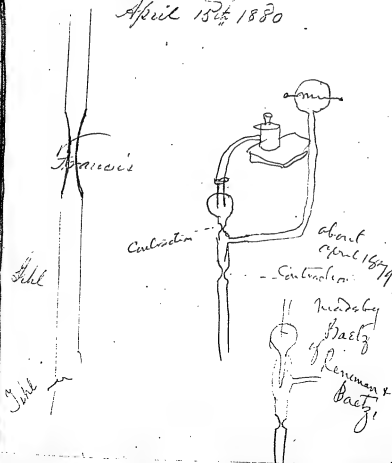 April 15th 1880
Francis
Contraction
about
April 1879
Contraction
made by
Baetz
of
Reneman &
Baetz,